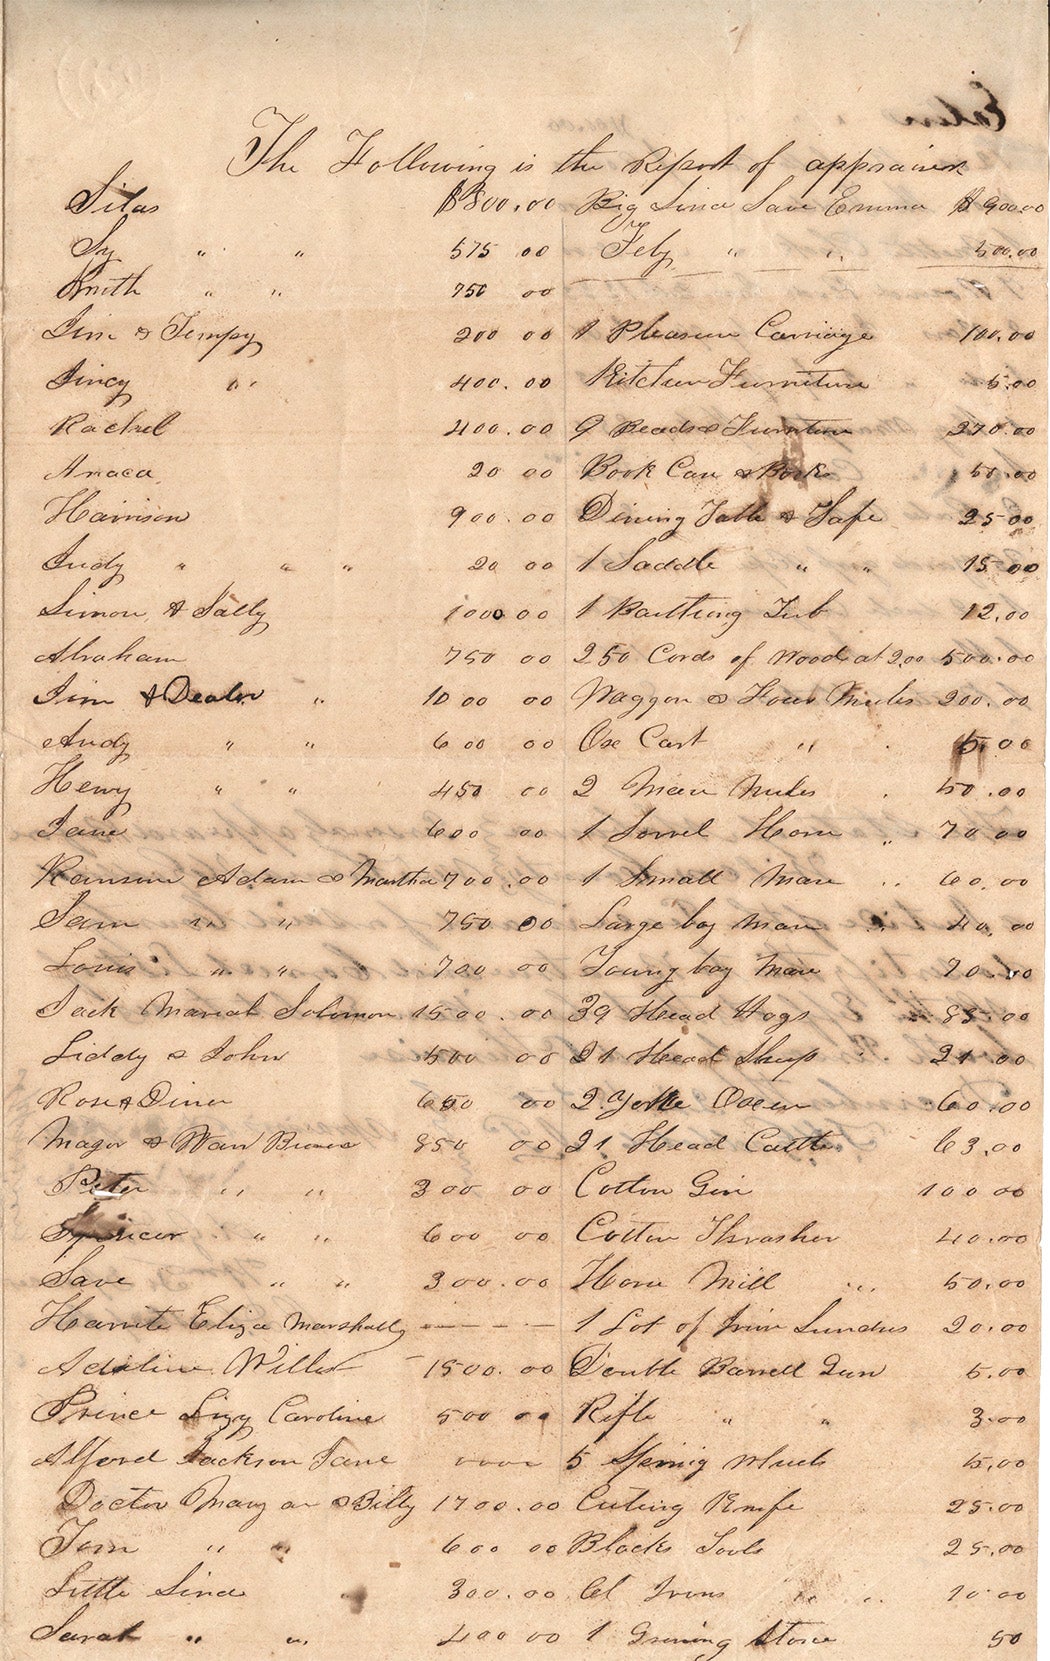 The Following is the Report of appraisers
Silas $800.00
Sy " " 575 00
Smith " " 750 00
Jim & Tempy 200 00
Jincy " 400.00
Rachel 400.00
Anaca 20 00
Harrison 900.00
Judy " " " 20 00
Simon & Sally 1000 00
Abraham 750 00
Jim & Dealer " 1000 00
Andy " " 600 00
Henry " " 450 00
Jane 600 00
Ransom Adam & Martha 700.00
Sam " " 750 00
Louis " " 700 00
Jack Mariah Solomon 1500.00
Liddy & John 500 00
Rose & Diner 650 00
Magor & Wan 850 00
Peter " " 300 00
Spencer " " 600 00
Save " " 300.00
Harrite Eliza Marshally - - - -
Adaline Willis 1500.00
Prince Lizy Caroline 500 00
Alford Jackson Jane
Doctor Mary an & Billy 1700.00
Tom " " 600 00
Little Sinda 300.00
Sarah " " 400 00
Big Sinda Save Emma $900.00
Feby " " 500.00
1 Pleasure Carriage 100.00
Kitchen Furniture 5.00
9 Beads & Furniture 270.00
Book Case & Books 50.00
Dining Table & Safe 25 00
1 Saddle " " 15 00
1 Baithing Tub 12.00
250 Cords of Wood at 2.00 500.00
Waggon & Four Mules 200.00
Oxe Cart " 5.00
2 Mare Mules 50.00
1 Sorrel Horse " 70.00
1 Small Mare " 60.00
Large bay Mare 40.00
Young bay Mare 70.00
39 Head Hogs 85.00
21 Head Sheep 21.00
2 Yoke Oxen 60.00
21 Head Cattle 63.00
Cotton Gin 100 00
Cotton Thrasher 40.00
Horse Mill " 50.00
1 Lot of Iron Sundres 20.00
Double Barrell Gun 5.00
Rifle " " 3.00
5 Spinig wheels 5.00
Cuting Knife 25.00
Blacks Tools 25.00
Irons " 10.00
1 Grining Stone 50